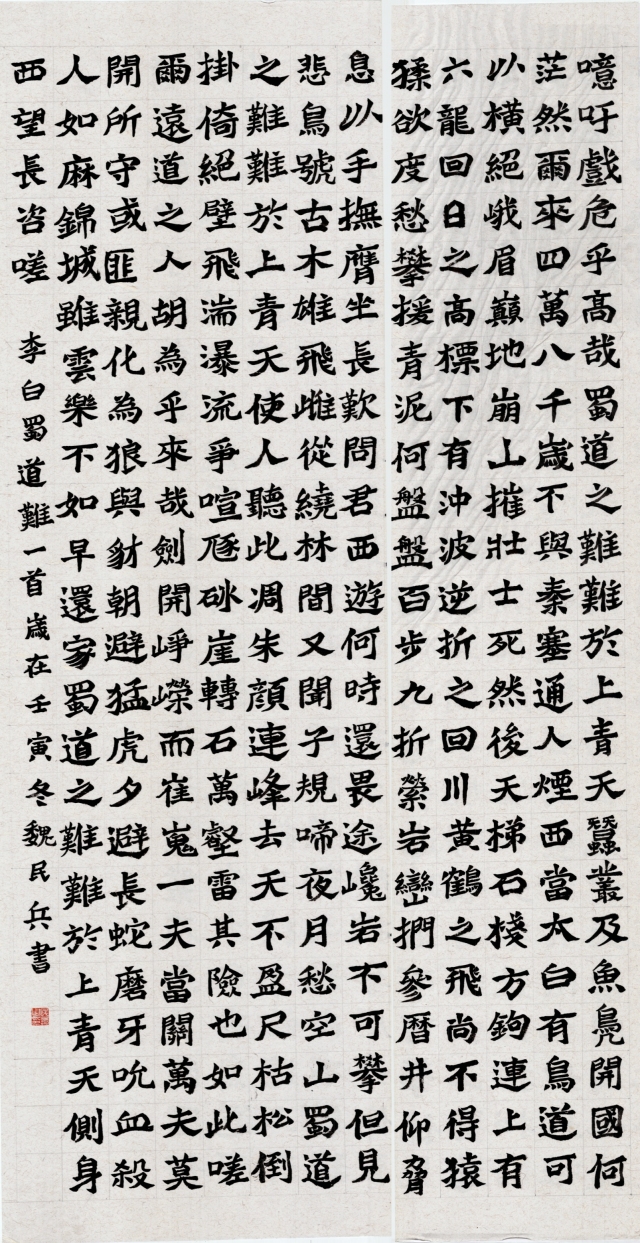 噫吁戲危乎高哉蜀道之難難於上青天蠶叢及魚鳧開國何
茫然爾來四萬八千歲不與秦塞通人煙西當太白有鳥道可
以橫絕峨眉巔地崩山摧壯士死然後天梯石棧方鉤連上有
六龍回日之高標下有沖波逆折之回川黃鶴之飛尚不得猿
猱欲度愁攀援青泥何盤盤百步九折縈岩巒捫參曆井仰脅
息以手撫膺坐長歎問君西遊何時還畏途巉岩不可攀但見
悲鳥號古木雄飛雌從繞林間又聞子規啼夜月愁空山蜀道
之難難於上青天使人聽此凋朱顏連峰去天不盈尺枯松倒
掛倚絕壁飛湍瀑流爭喧豗砯崖轉石萬壑雷其險也如此嗟
爾遠道之人胡為乎來哉劍開崢嶸而崔嵬一夫當關萬夫莫
開所守或匪親化為狼與豺朝避猛虎夕避長蛇磨牙吮血殺
人如麻錦城雖雲樂不如早還家蜀道之難難於上青天側身
西望長咨嗟
李白蜀道難一首歲在壬寅冬魏民兵書